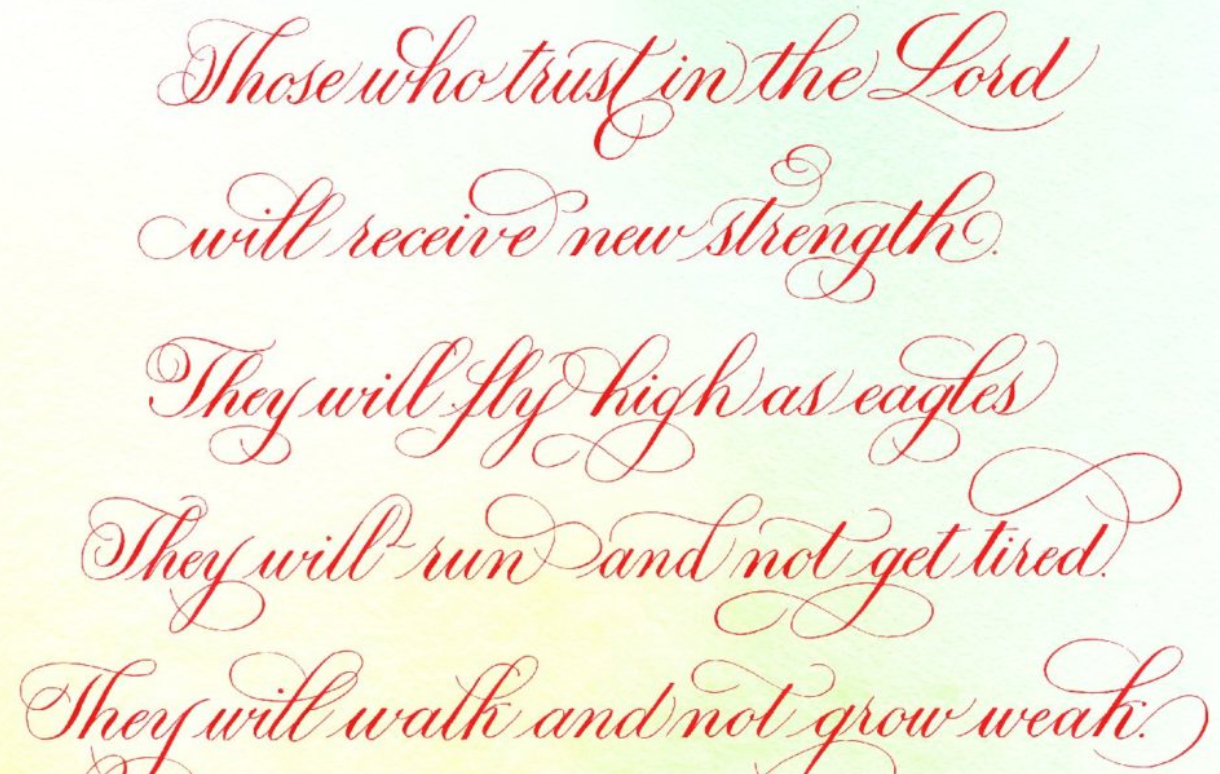 Those who trust in the Lord
will receive new strength.
They will fly high as eagles
They will run and not get tired.
They will walk and not grow weak.